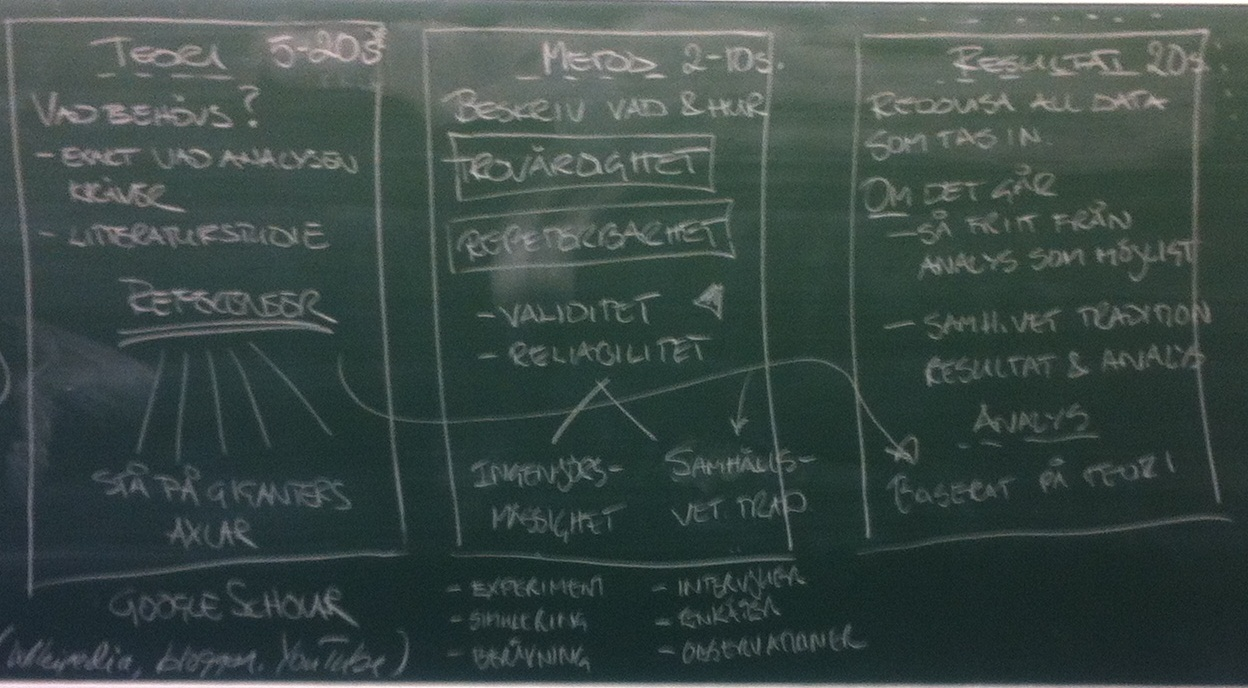 TEORI 5-20s
VAD BEHÖVS?
- EXAKT VAD ANALYSEN
KRÄVER
- LITTERATURSTUDIE
REFERENSER
STÅ PÅ GIGANTERS
AXLAR
GOOGLE SCHOLAR
(wikipedia, bloggar, YouTube)
METOD 2-10s.
BESKRIV VAD & HUR
TROVÄRDIGHET
REPETERBARHET
- VALIDITET
- RELIABILITET
INGENJÖRS-
MÄSSIGHET
- EXPERIMENT
- SIMULERING
- BERÄKNING
SAMHÄLLS-
VET. TRAD.
- INTERVJUER
- ENKÄTER
- OBSERVATIONER
RESULTAT 20s.
REDOVISA ALL DATA
SOM TAS IN.
OM DET GÅR
- SÅ FRITT FRÅN
ANALYS SOM MÖJLIGT
- SAMH.VET TRADITION
RESULTAT & ANALYS
ANALYS
BASERAT PÅ TEORI